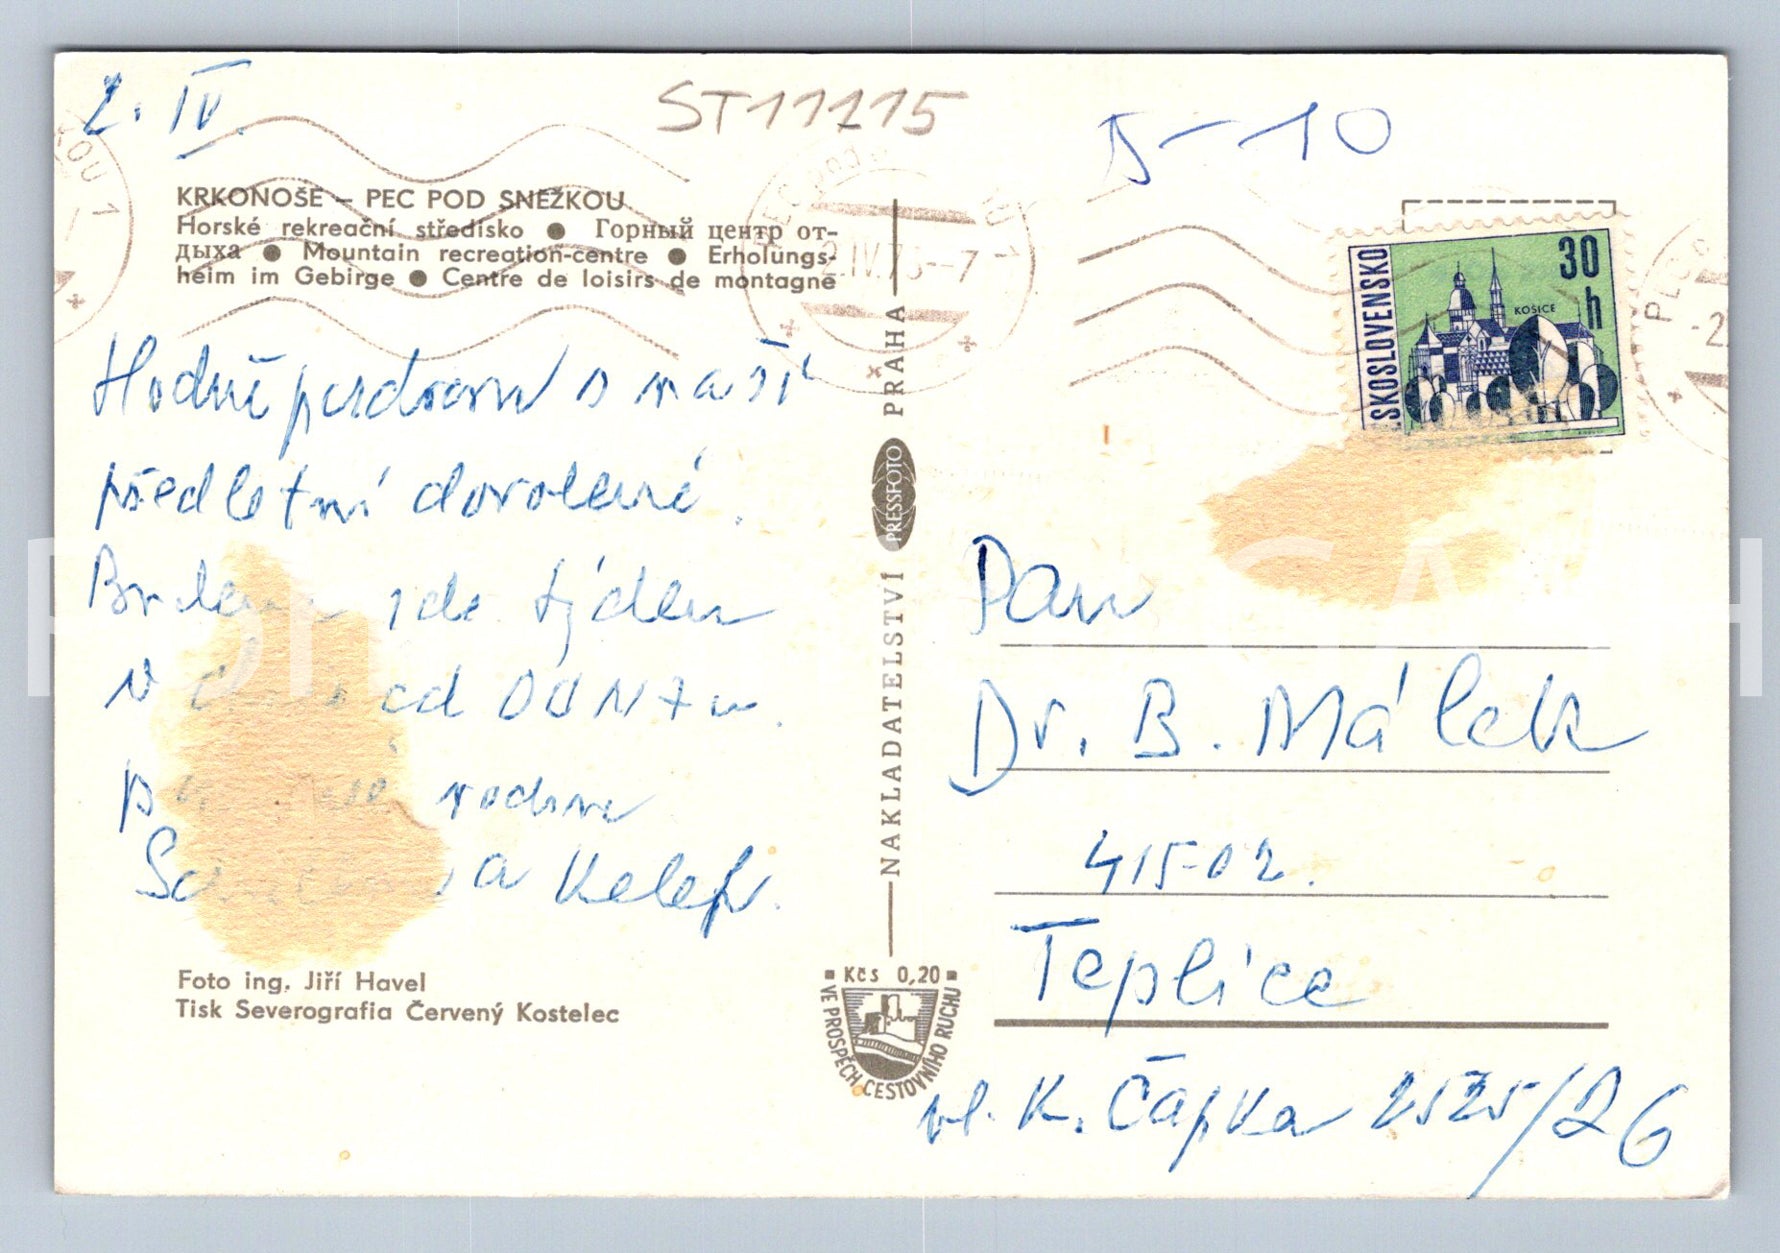 2. IV.
ST11115
5-10
KRKONOŠE – PEC POD SNĚŽKOU
Horské rekreační středisko ● Горный центр от-
дыха ● Mountain recreation-centre ● Erholungs-
heim im Gebirge ● Centre de loisirs de montagne
Hodně pozdravů s naší
předletní dovolené.
zde týden
v
rodina
a
Foto ing. Jiří Havel
Tisk Severografia Červený Kostelec
NAKLADATELSTVÍ PRESSFOTO PRAHA
Kčs 0,20
VE PROSPĚCH CESTOVNÍHO RUCHU
SKOSLOVENSKO
30
h
KOŠICE
2.IV.7 -7
Pan
Dr. B. Málek
415 02.
Teplice
ul. K. Čapka 2525/26